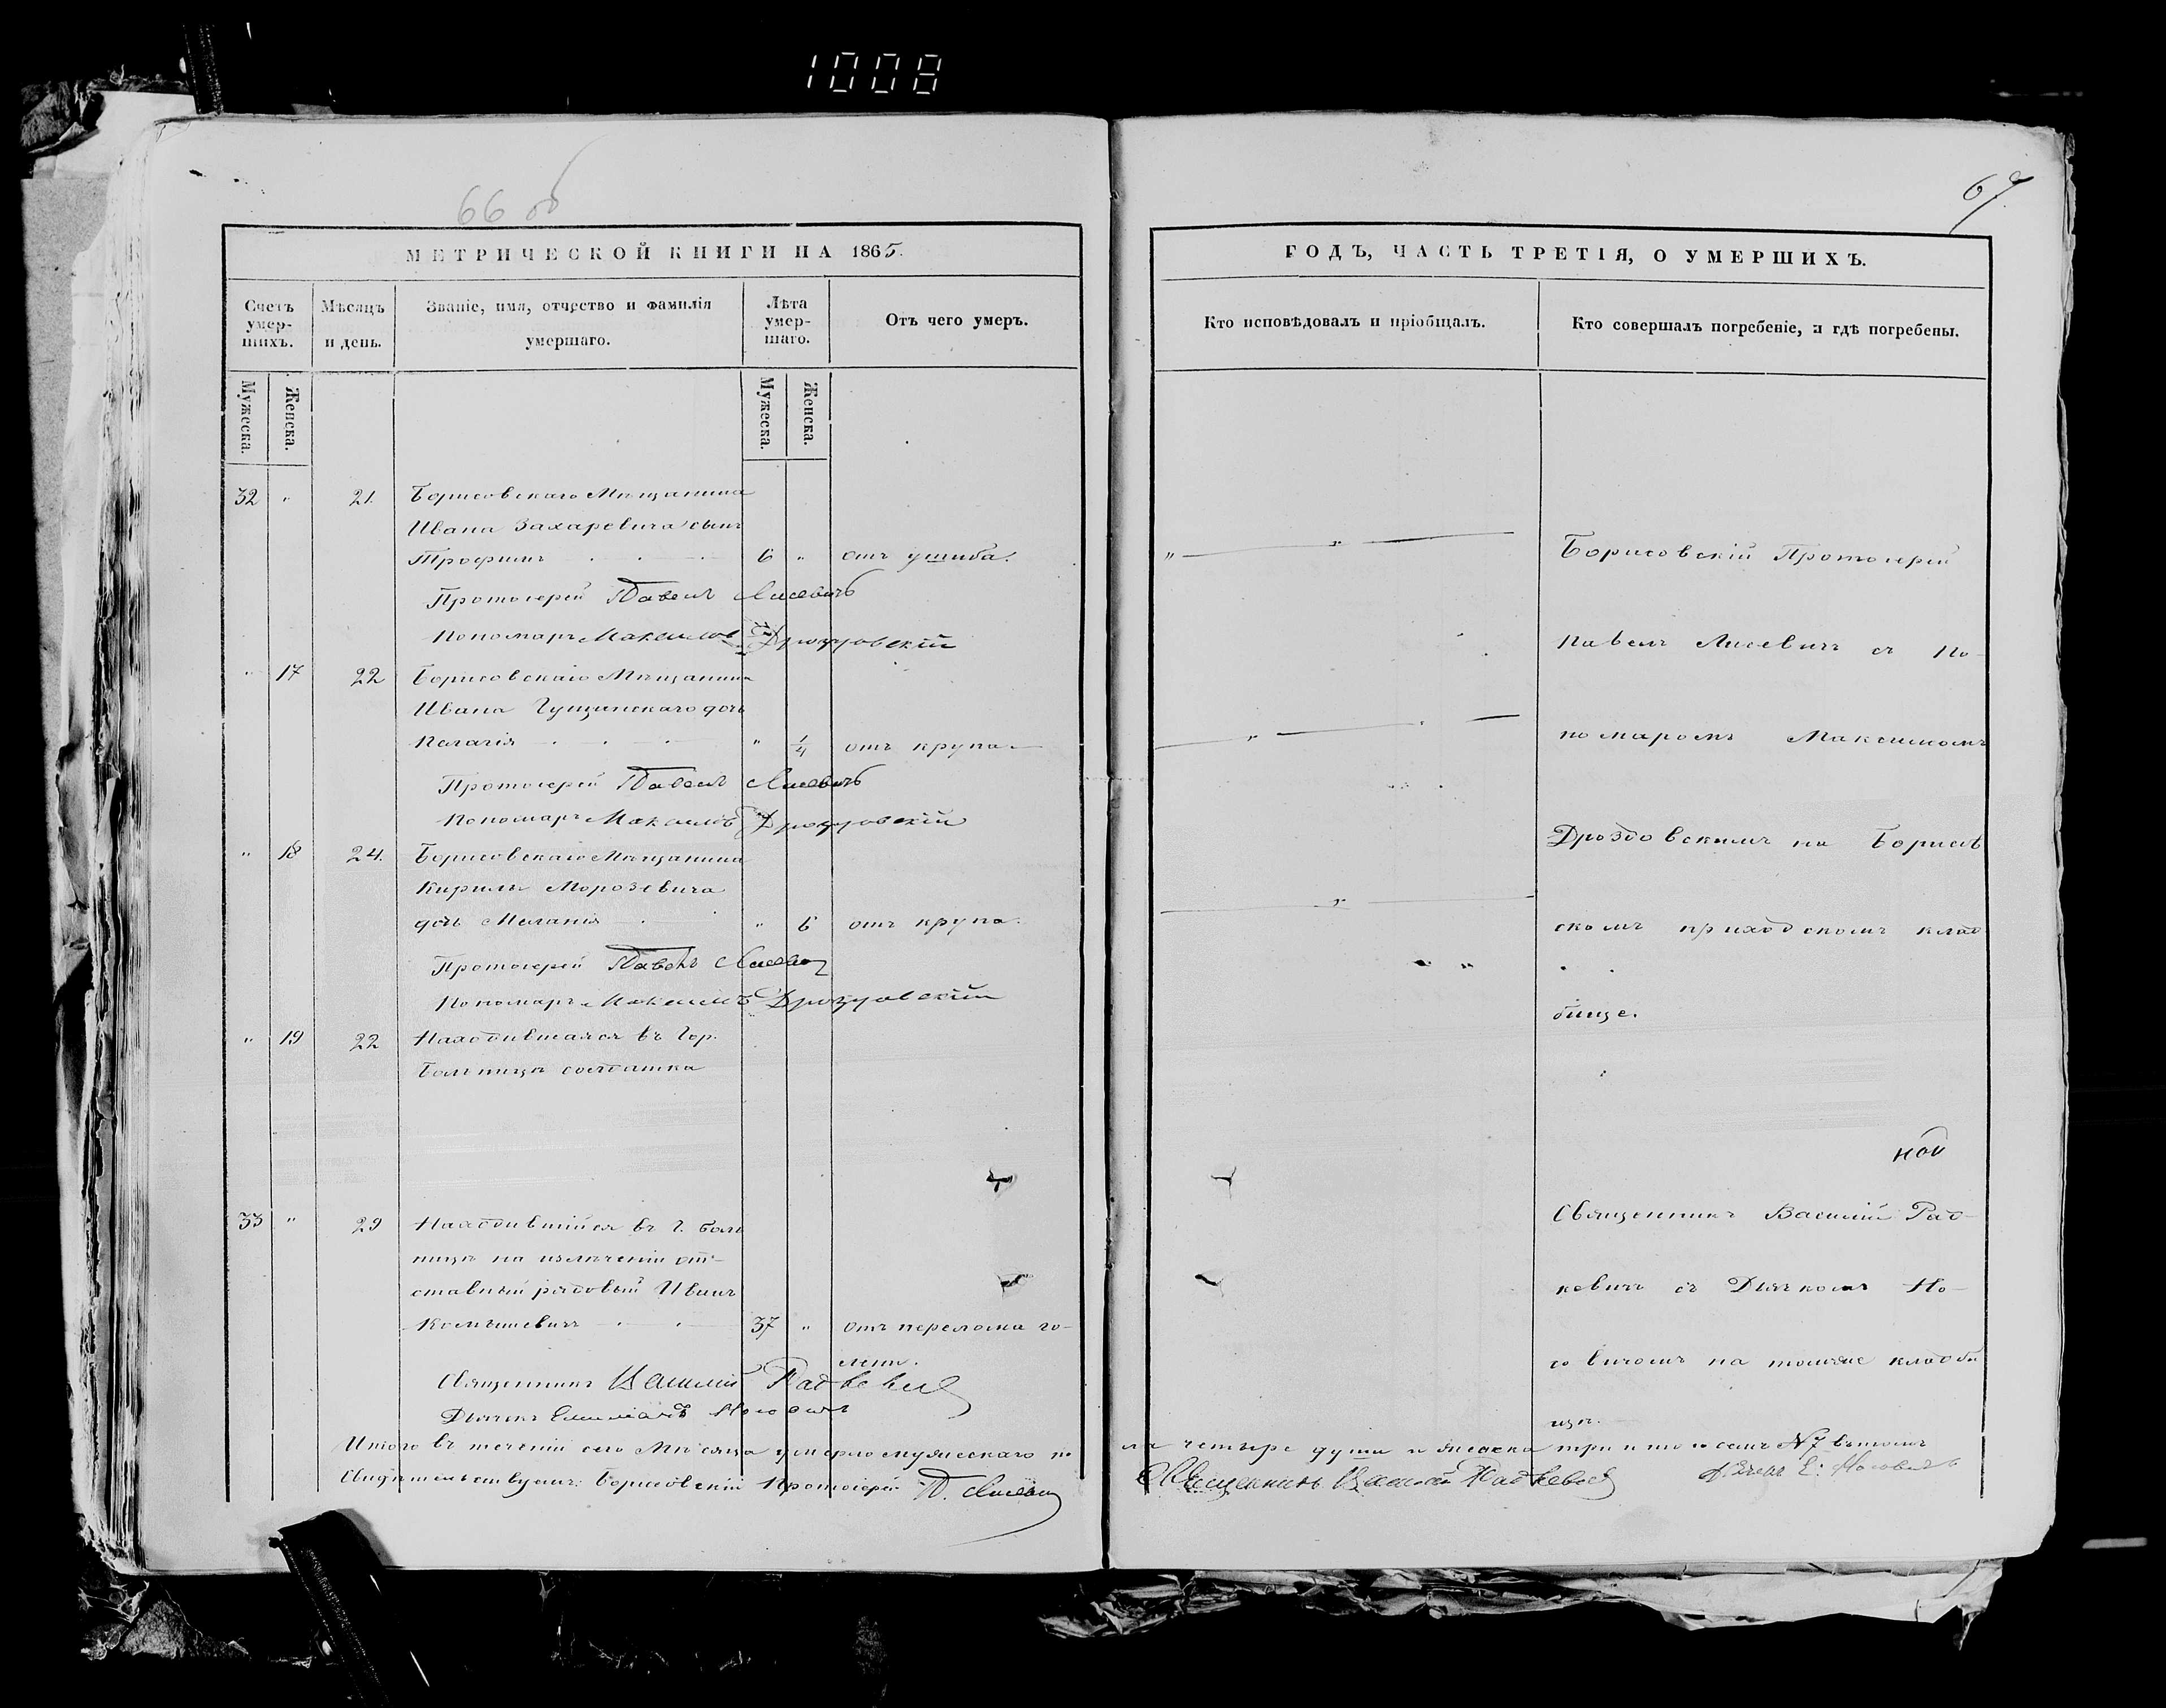 1008
66 об
МЕТРИЧЕСКОЙ КНИГИ НА 1865.
Счетъ умер-
шихъ.
Мѣсяцъ
и день.
Званіе, имя, отчество и фамилія
умершаго.
Лѣта
умер-
шаго.
Отъ чего умеръ.
Мужеска.
Женска.
Мужеска.
Женска.
32 " 21. Борисовскаго Мѣщанина
Ивана Захаревича сынъ
Трофимъ 6 " отъ ушиба.
Протоіерей Павелъ Лисевичъ
Пономарь Максимъ Дроздовскій
" 17 22 Борисовскаго Мѣщанина
Ивана Гущинскаго дочь
Пелагія " 1/4 отъ крупа
Протоіерей Павелъ Лисевичъ
Пономарь Максимъ Дроздовскій
" 18 24. Борисовскаго Мѣщанина
Кирилы Морозевича
дочь Меланія " 6 отъ крупа.
Протоіерей Павелъ Лисевич
Пономарь Максимъ Дроздовскій
" 19 22 Находившаяся въ Гор.
Больницѣ солдатка
33 " 29 Находившійся въ г. боль
ницѣ на излѣченіи от-
ставный рядовый Иванъ
37 " отъ перелома го-
лени.
Священникъ Василій Радкевич
Дьячекъ Емиліанъ Носовичъ
Итого въ теченіи сего Мѣсяца умерло мужескаго по
Свидѣтельствуютъ: Борисовскій Протоіерей П. Лисевич
67.
ГОДЪ, ЧАСТЬ ТРЕТІЯ, О УМЕРШИХЪ.
Кто исповѣдовалъ и пріобщалъ.
Кто совершалъ погребеніе, и гдѣ погребены.
Борисовскій Протоіерей
Павелъ Лисевичъ съ По-
номаромъ Максимомъ
Дроздовскимъ на Борисов
скомъ приходскомъ клад
бище.
Священникъ Василій Рад-
кевичъ съ Дьячкомъ Но-
совичомъ на томже кладби
щѣ.
ла четыре души и женска три
Священникъ Василій Радкевич
Дьячекъ Е. Носовичъ